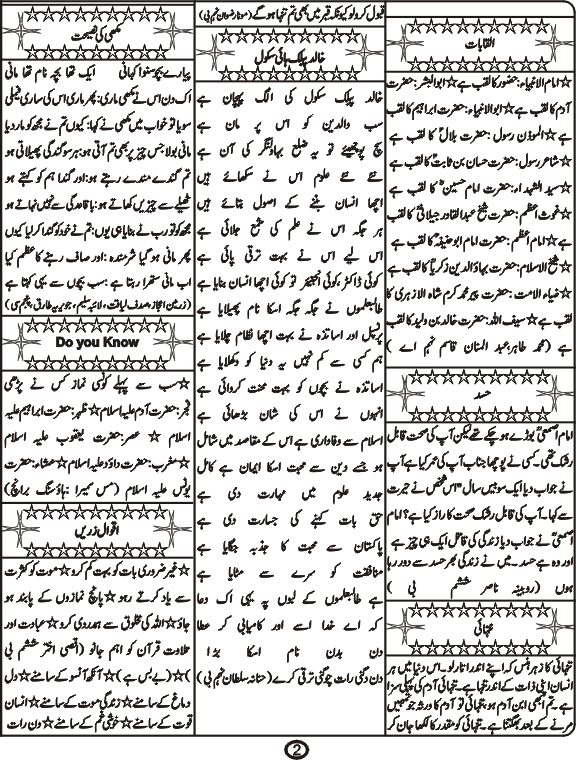 القابات
☆امام الانبیاء:حضورؐ کا لقب ہے☆ابوالبشر:حضرت
آدمؑ کا لقب ہے☆ابوالانبیاء:حضرت ابراہیمؑ کا لقب
ہے☆المؤذن رسول:حضرت بلالؓ کا لقب ہے
☆شاعر رسول:حضرت حسان بن ثابتؓ کا لقب ہے☆
سید الشہداء:حضرت امام حسینؓ کا لقب ہے☆
غوث اعظم:حضرت شیخ عبدالقادر جیلانیؒ کا لقب
ہے☆امام اعظم:حضرت امام ابوحنیفہؒ کا لقب ہے☆
شیخ الاسلام:حضرت بہاؤالدین زکریاؒ کا لقب ہے
☆ضیاء الامت:حضرت پیر محمد کرم شاہ الازہری کا
لقب ہے☆سیف اللہ:حضرت خالد بن ولیدؓ کا لقب
ہے (محمد طاہر:عبد المنان قاسم نہم اے)
حسد
امام اصمعیؒ بوڑے ہو چکے تھے لیکن آپ کی صحت قابل
رشک تھی۔کسی نے پوچھا جناب آپ کی عمر کیا ہے آپ
نے جواب دیا ایک سو بیس سال "اس شخص نے حیرت
سے کہا۔آپ کی قابل رشک صحت کا راز کیا ہے؟امام
اصمعیؒ نے جواب دیا زندگی کی قاتل ایک ہی چیز ہے
اور وہ ہے حسد۔میں نے زندگی بھر حسد سے دور رہا
ہوں (روبینہ ناصر ششم بی)
تنہائی
تنہائی کا زہر ہنس کہ اپنے اندر اتار لو۔اس دنیا میں ہر
انسان اپنی ذات کے اندر تنہا ہے۔تنہائی آدم کی پہلی سزا
ہے۔تم بھی ابن آدم ہو،تنہائی تو آدم کا ورثہ جو تمہیں
مرنے کے بعد بھگتنا ہے۔تنہائی کو مقدر کا لکھا جان کر
قبول کر لو کیونکہ قبر میں بھی تم تنہا ہو گے (سونا رضوان نہم بی)
خالد پبلک ہائی سکول
خالد پبلک سکول کی الگ پہچان ہے
سب والدین کو اس پر مان ہے
سچ پوچھیئے تو یہ ضلع بہاولنگر کی آن ہے
نئے نئے علوم اس نے سکھائے ہیں
اچھا انسان بننے کے اصول بتائے ہیں
ہر جگہ اس نے علم کی شمع جلائی ہے
اس لیے اس نے بہت ترقی پائی ہے
کوئی ڈاکٹر،کوئی انجینئر تو کوئی اچھا انسان بنایا ہے
طالبعلموں نے جگہ جگہ اسکا نام پھیلایا ہے
پرنسپل اور اساتذہ نے بہت اچھا نظام چلایا ہے
ہم کسی سے کم نہیں یہ دنیا کو دکھلایا ہے
اساتذہ نے بچوں کو بہت محنت کروائی ہے
انہوں نے اس کی شان بڑھائی ہے
اسلام سے وفاداری ہے اس کے مقاصد میں شامل
ہو جسے دین سے محبت اسکا ایمان ہے کامل
جدید علوم میں مہارت دی ہے
حق بات کہنے کی جسارت دی ہے
پاکستان سے محبت کا جذبہ جگایا ہے
منافقت کو سرے سے مٹایا ہے
ہے طالبعلموں کے لبوں پہ یہی اک دعا
کہ اے خدا اسے اور کامیابی کر عطا
دن بدن نام اسکا بڑا
دن دگنی رات چوگنی ترقی کرے (حنانہ سلطان نہم بی)
مکھی کی نصیحت
پیارے بچو سنو اک کہانی ایک تھا بچہ نام تھا مانی
اک دن اس نے مکھی ماری:پھر ماری اس کی ساری فیملی
سویا تو خواب میں مکھی نے کہا:کیوں تم نے مجھ کو مار دیا
مانی بولا جس چیز پر بھی تم آتی ہو:ہر سو گندگی پھیلاتی ہو
تم گندے مندے رہتے ہو:اور گندا ہم کو کہتے ہو
ٹھیلے سے چیزیں کھاتے ہو:با قاعدگی سے نہیں نہاتے ہو
مجھ کو تو رب نے بنایا ہی یوں:تم نے خود کو گندا کر لیا کیوں
پھر مانی ہو گیا شرمندہ:اور صاف رہنے کا عظم کیا
اب مانی ستھرا رہتا ہے:سب بچوں سے یہی کہتا ہے
(زرمین اعجاز،صدف لیاقت،لائبہ سلیم،جویریہ طارق پنجم سی)
Do you Know
☆سب سے پہلے کونسی نماز کس نے پڑھی
فجر:حضرت آدم علیہ اسلام☆ظہر:حضرت ابراہیم علیہ
اسلام☆عصر:حضرت یعقوب علیہ اسلام
☆مغرب:حضرت داؤد علیہ اسلام☆عشاء:حضرت
یونس علیہ اسلام (مس سمیرا نہاؤسنگ برانچ)
اقوال زریں
☆غیر ضروری بات کو بہت کم کرو☆موت کو کثرت
سے یاد کرتے رہو☆پانچ نمازوں کے پابند ہو
جاؤ☆اللہ کی مخلوق سے ہمدردی کرو☆عبادت اور
تلاوت قرآن کو اہم جانو (اقصی اختر ششم بی
)☆(بے بس ہے)☆آنکھ آنسو کے سامنے☆دل
دماغ کے سامنے☆زندگی موت کے سامنے☆انسان
قوت کے سامنے☆خوشی غم کے سامنے☆دن رات
2